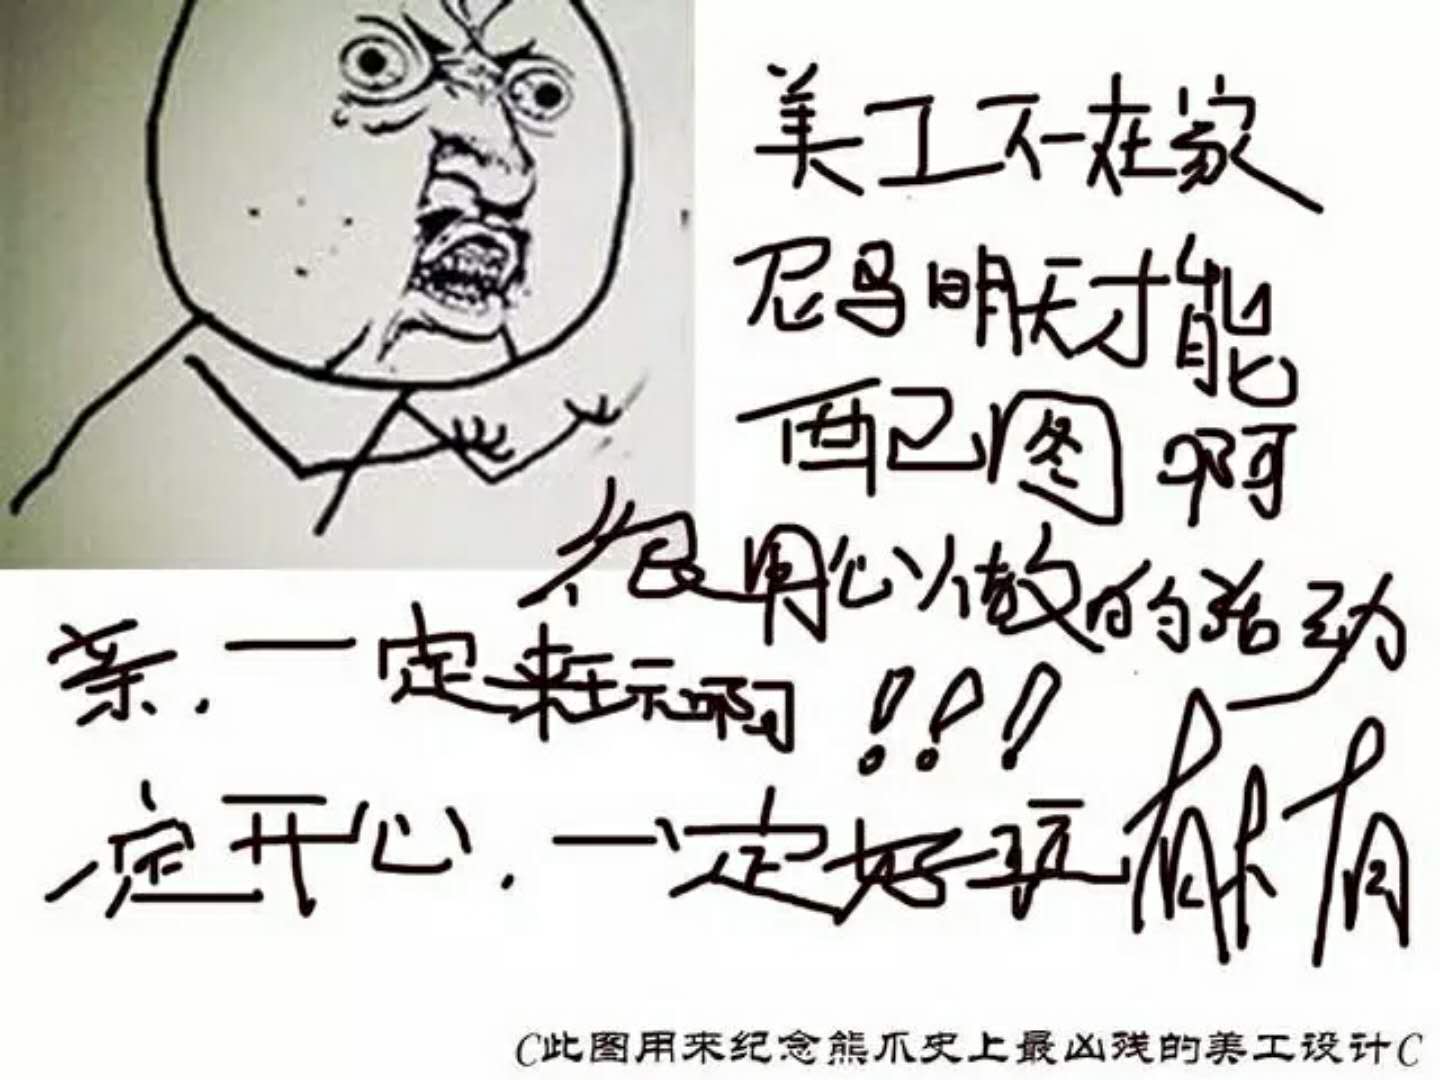 美工不在家
尼玛明天才能
配图啊
很用心做的活动
亲.一定来玩啊!!!
定开心.一定好玩有木有
C此图用来纪念熊爪史上最凶残的美工设计C